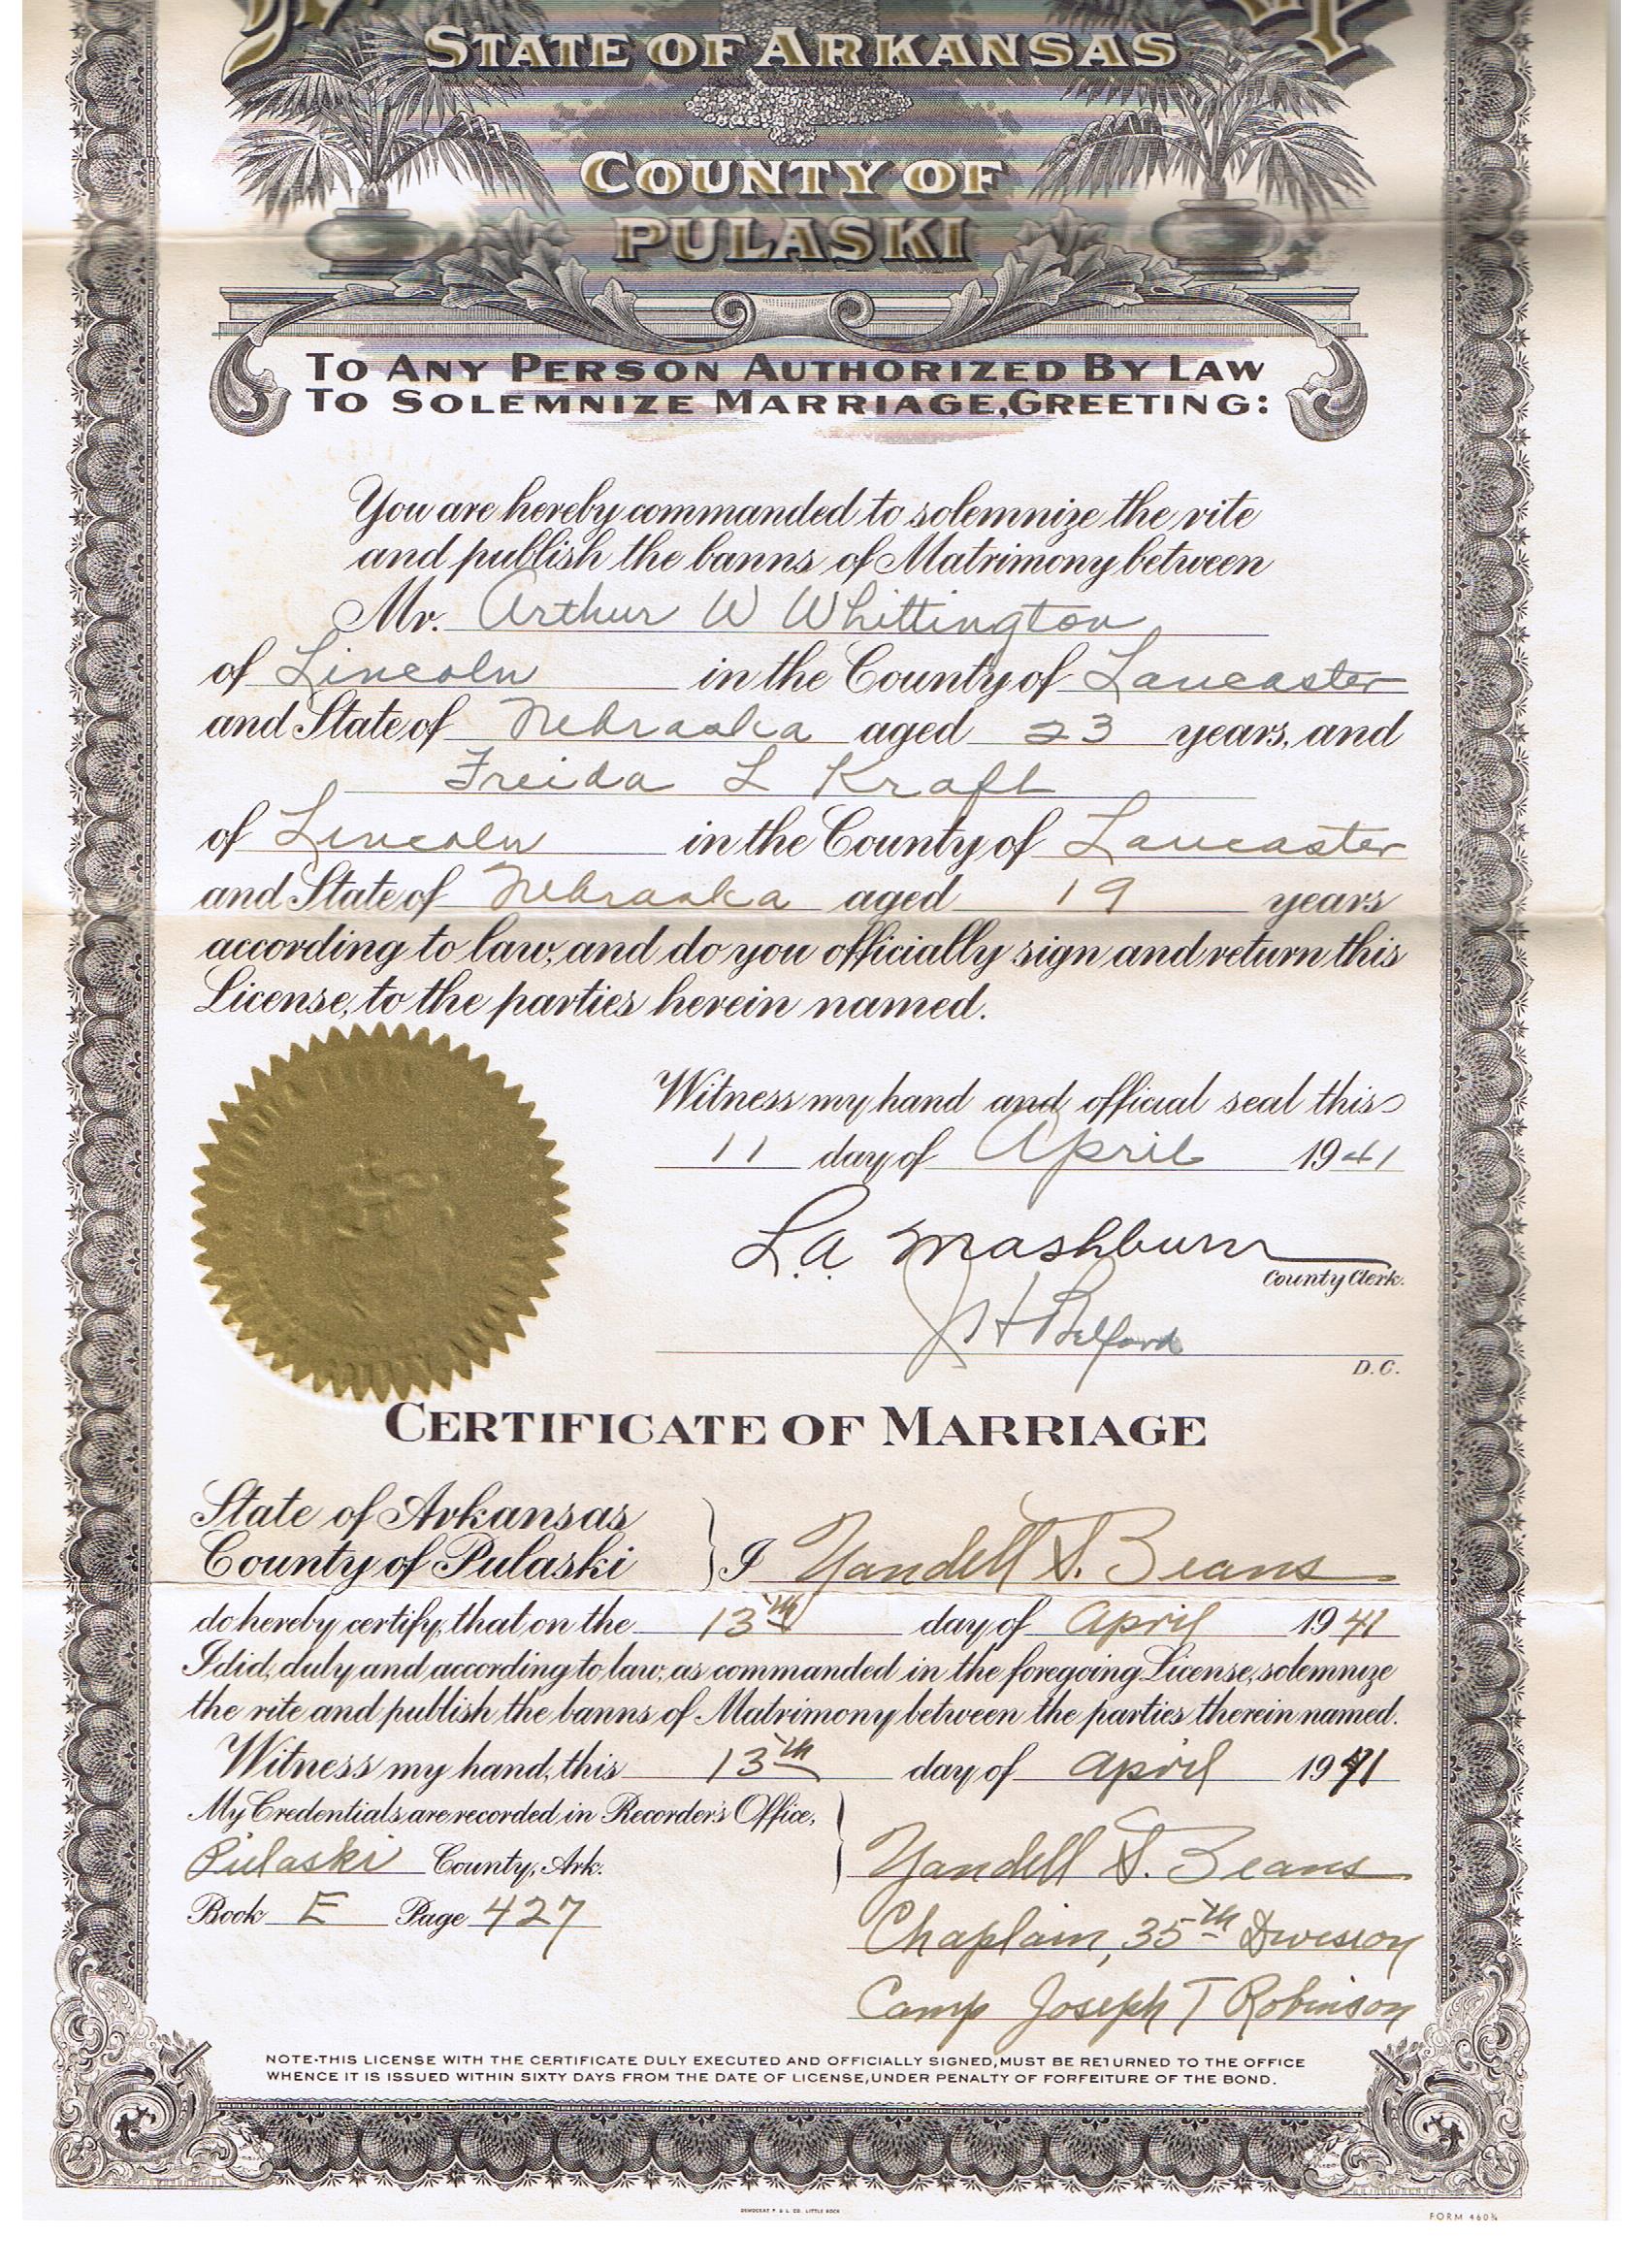 STATE OF ARKANSAS
COUNTY OF
PULASKI
TO ANY PERSON AUTHORIZED BY LAW
TO SOLEMNIZE MARRIAGE, GREETING:
You are hereby commanded to solemnize the rite
and publish the banns of Matrimony between
Mr. Arthur W Whittington
of Lincoln in the County of Lancaster
and State of Nebraska aged 23 years, and
Freida L Kraft
of Lincoln in the County of Lancaster
and State of Nebraska aged 19 years
according to law, and do you officially sign and return this
License, to the parties herein named.
Witness my hand and official seal this
11 day of April 1941
L.A. Mashburn
County Clerk.
J H Belford
D.C.
CERTIFICATE OF MARRIAGE
State of Arkansas
County of Pulaski } I Yandell S. Beans
do hereby certify, that on the 13th day of April 1941
I did, duly and according to law, as commanded in the foregoing License, solemnize
the rite and publish the banns of Matrimony between the parties therein named.
Witness my hand, this 13th day of April 1941
My Credentials are recorded in Recorder's Office,
Pulaski County, Ark. Yandell S. Beans
Book E Page 427 Chaplain, 35th Division
Camp Joseph T Robinson
NOTE-THIS LICENSE WITH THE CERTIFICATE DULY EXECUTED AND OFFICIALLY SIGNED, MUST BE RETURNED TO THE OFFICE
WHENCE IT IS ISSUED WITHIN SIXTY DAYS FROM THE DATE OF LICENSE, UNDER PENALTY OF FORFEITURE OF THE BOND.
DEMOCRAT P. & L. CO. LITTLE ROCK
FORM 460¾